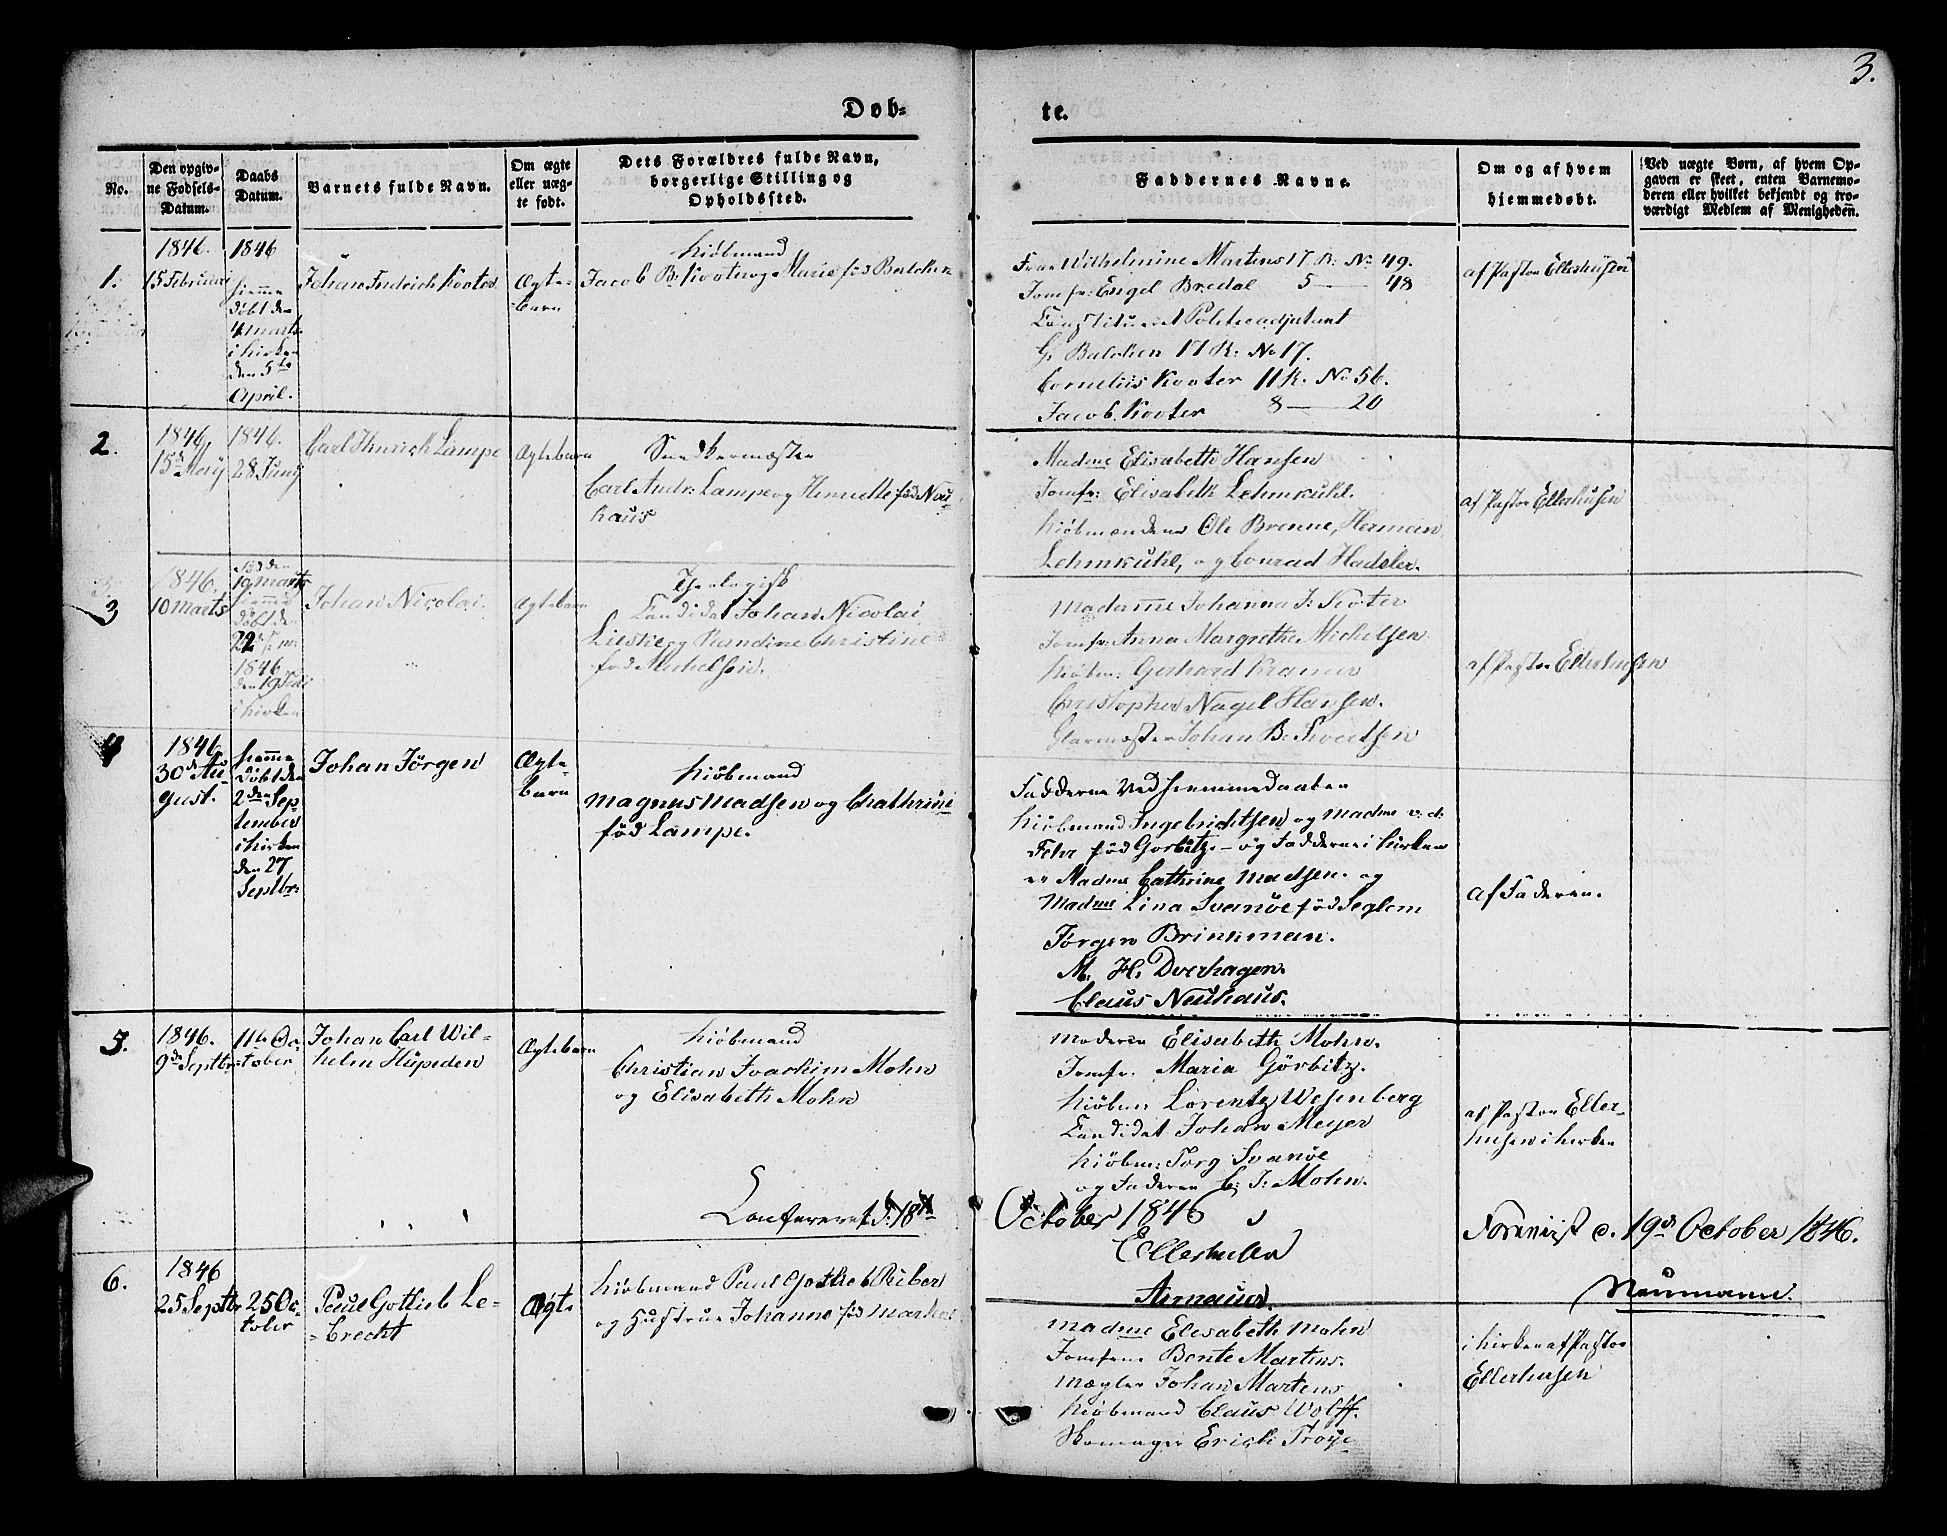 3.
Døb-
te.
No.
Den opgiv-
ne Fødsels-
Datum.
Daabs
Datum.
Barnets fulde Navn.
Om ægte
eller uæg-
te født.
Dets Forældres fulde Navn,
borgerlige Stilling og
Opholdssted.
Faddernes Navne.
Om og af hvem
hjemmedøbt.
Ved uægte Børn, af hvem Op-
gaven er skeet, enten Barnemo-
deren eller hvilket bekjendt og tro-
værdigt Medlem af Menigheden.
1.
1846.
15 Februar
1846
hiemme
döbt den
4 marts
i Kirken
den 5te
April.
Johan Fredrich Kooter
Ægte-
barn
Kiöbmand
Jacob B. Kooter og Marie föd Balchen
Frue Wilhelmine Martens 17 R: No 49.
Jomfr: Engel Bredal 5 — 48
Constitueret Politieadjutant
G. Balchen 17 R: No 17.
Cornelius Kooter 11 R. No 56.
Jacob Kooter 8 — 20
af Pastor Ellerhusen
2.
1846.
15de May
1846.
28 Juny
Carl Hinrich Lampe
Ægtebarn
Snedkermæster
Carl Andr: Lampe og Henriette föd Neu-
haus
Madme Elisabeth Hansen
Jomfr: Elisabeth Lehmkuhl.
Kiöbmændene Ole Brenne, Herman
Lehmkuhl, og Conrad Hadeler.
af Pastor Ellerhusen
3
1846.
10 Marts
föd den
19 marts
hiemme
döbt den
22
1846
den 19 Juli
i Kirken
Johan Nicolai
Ægtebarn
Theologisk
Candidat Johan Nicolai
Lieske og Randine Christine
föd Michelsen.
Madamme Johanna J. Kooter
Jomfr: Anna Margrethe Michelsen
Kiöbm: Gerhard Kramer
Christopher Nagel Hansen.
Glarmæster Johan B. Sivertsen
af Pastor Ellerhusen
4
1846
30de Au-
gust.
hiemme
döbt den
2den Sep-
tember
i Kirken
den 27
Septbr:
Johan Jörgen
Ægte-
barn
Kiöbmand
Magnus Madsen og Chathrine
föd Lampe.
Fadderne ved hiemmedaaben
Kiöbmand Ingebrichtsen og Madme v. d.
Fehr föd Gorbitz – og Fadderne i Kirken
er Madme Cathrine Madsen. og
Madme Lina Svanöe föd Seglem
Jörgen Brinkman.
M. H. Dverhagen.
Claus Neuhaus.
af Faderen.
5.
1846.
9de Septbr
11te Oc-
tober
Johan Carl Wil-
helm Hüpeden
Ægtebarn
Kiöbmand
Christian Joachim Mohn
og Elisabeth Mohn
Moderen Elisabeth Mohn.
Jomfr. Maria Görbitz.
Kiöbm: Lorentz Wesenberg
Candidat Johan Meyer
Kiöbm: Jörg Svanöe
og Faderen C: J: Mohn.
af Pastor Eller-
husen i Kirken
Confereret d: 18de
October 1846
Ellerhusen
Arnaus.
Foreviist d. 19de October 1846.
Neumann.
6.
1846
25 Septbr
25 Oc-
tober
Paul Gotlieb Le-
brecht
Ægte
Kiöbmand Paul Gotlieb Rieber
og Hustrue Johanne föd Markus
Madme Elisabeth Mohn
Jomfrue Bente Martens.
Mægler Johan Martens
Kiöbmand Claus Wolff.
Skomager Erich Troye
i Kirken af Pastor
Ellerhusen